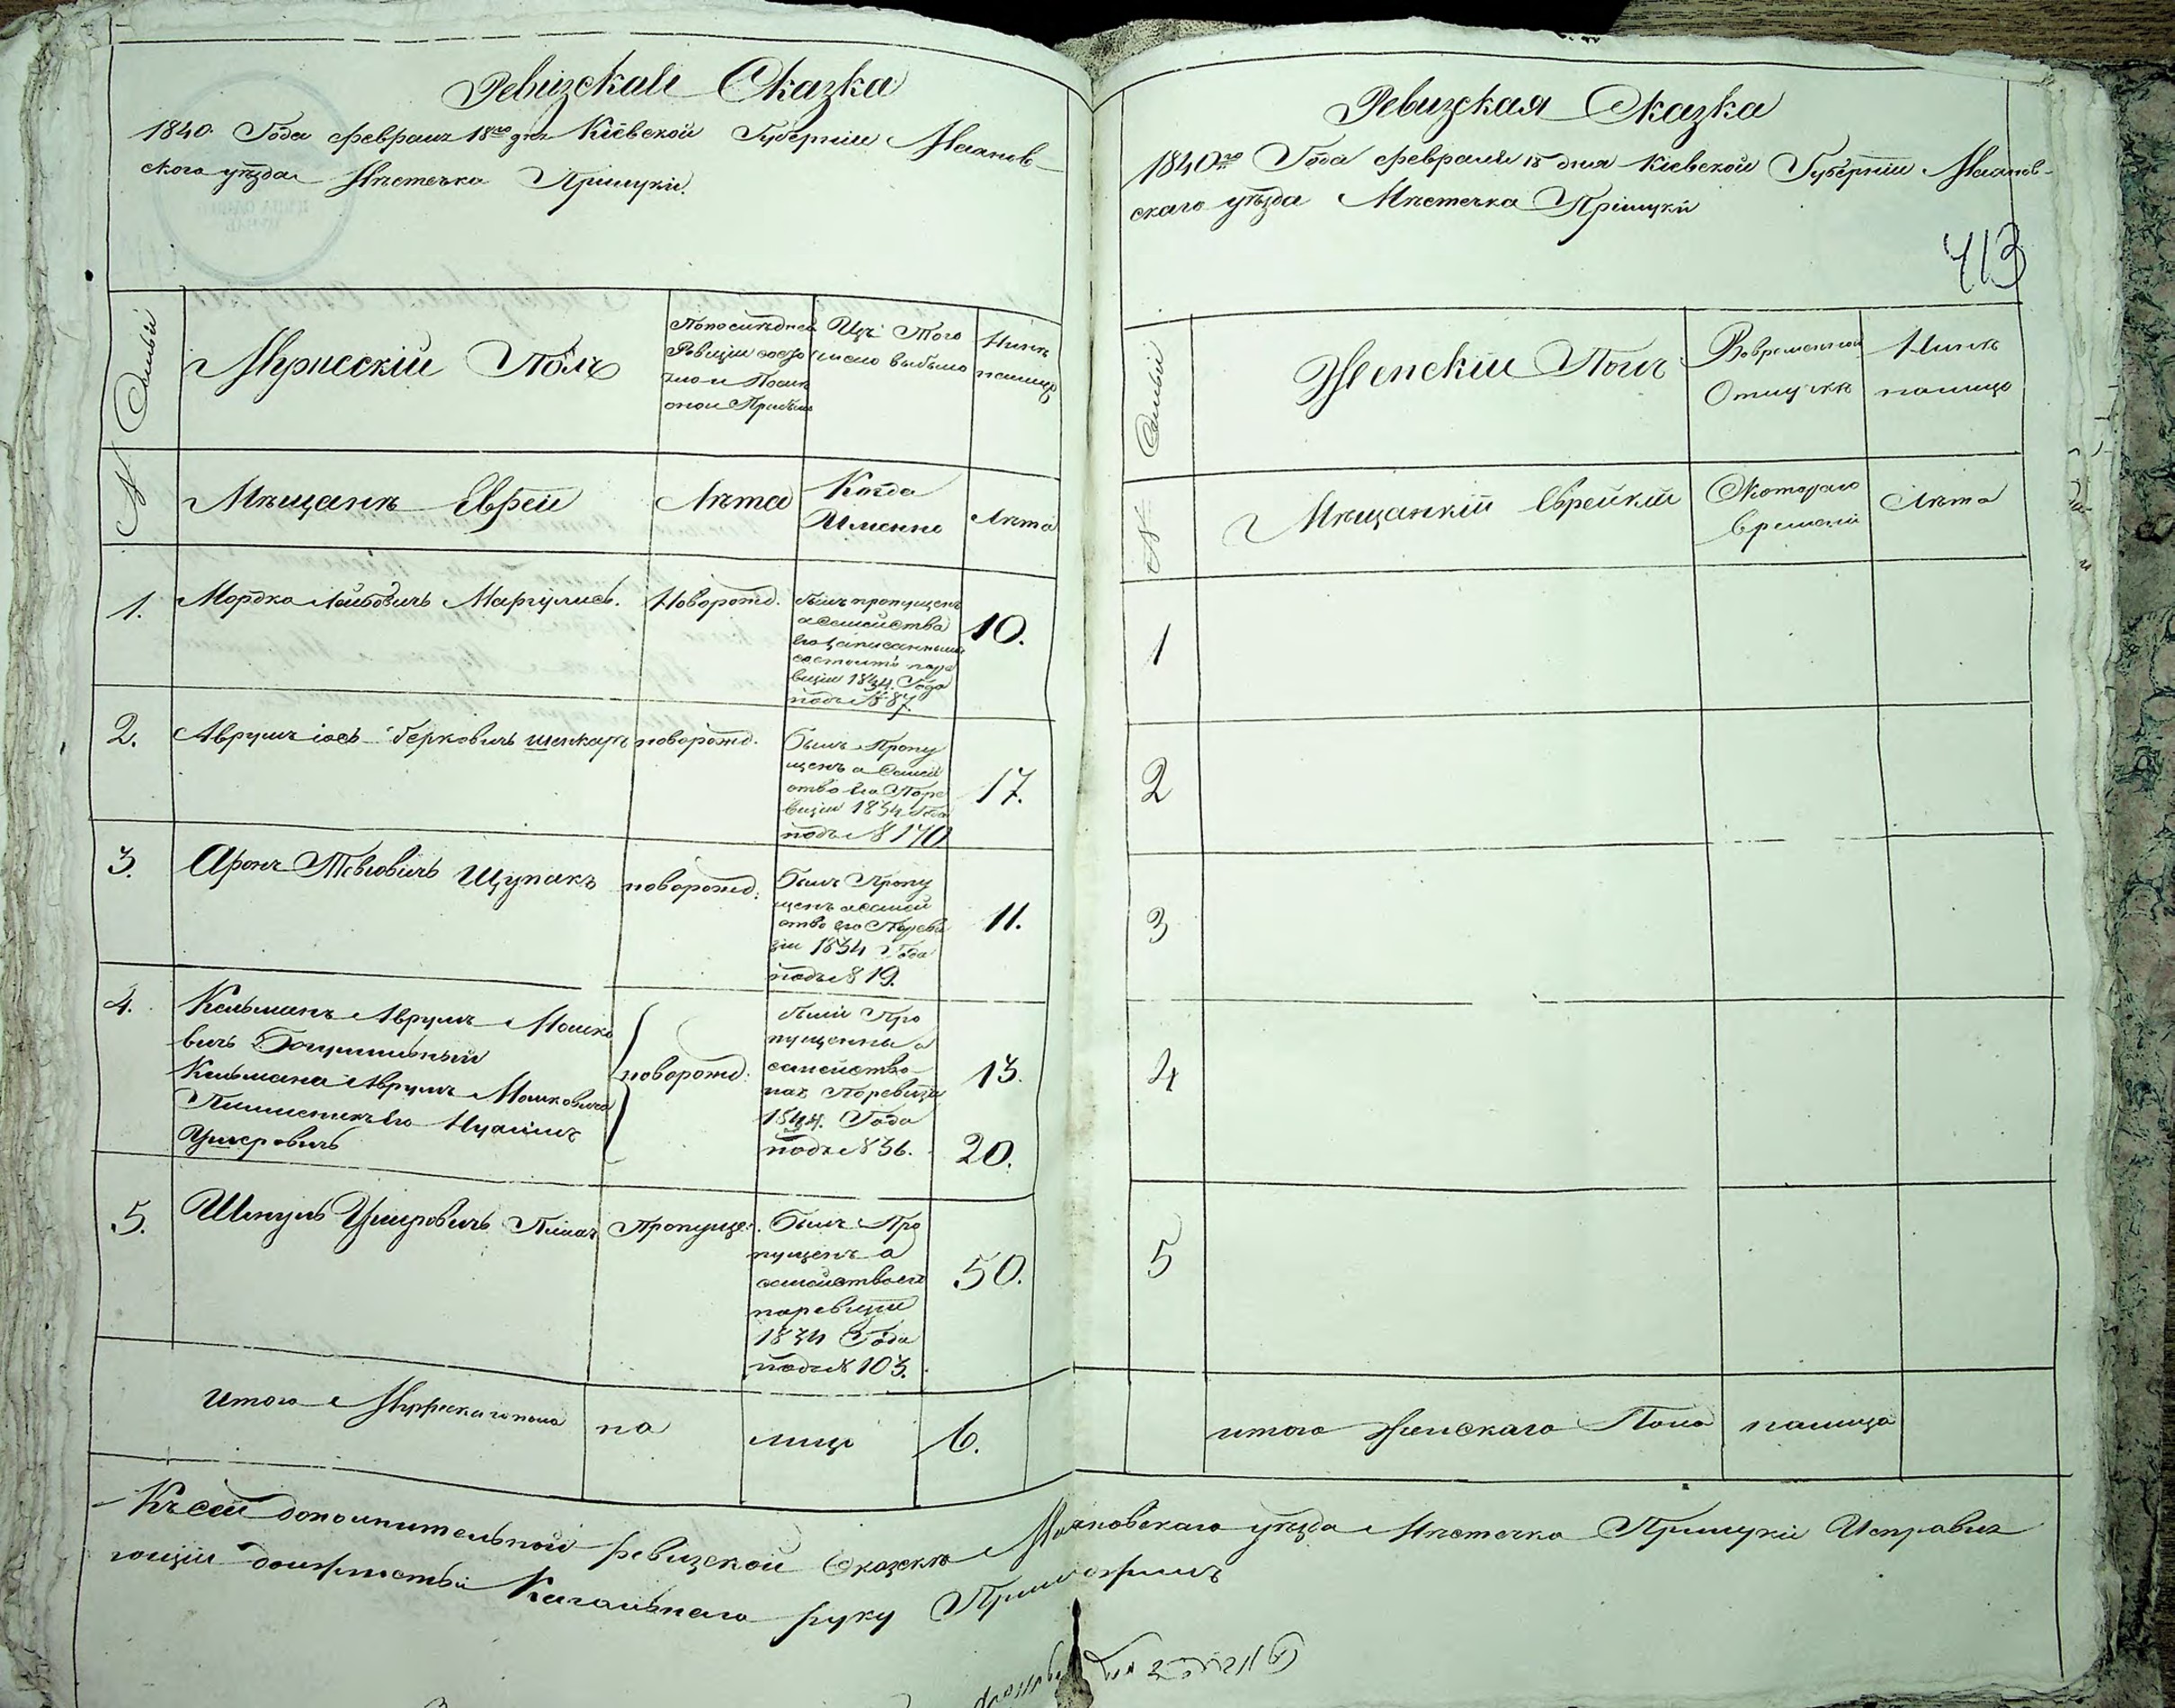 Ревизская Сказка
1840. Года февраля 18го дня Кіевской Губерніи
ского уѣзда Мѣстечка
№ Семьи
Мужескій Полъ
По последней
Ревизіи состо
яло и После
оной Прибыло
Изъ Того
числа выбыло
Нынѣ
налицо
Мѣщанѣ Евреи
Лѣта
Когда
Именно
Лѣта
1.
Мордко Лейбовичъ Маргулисъ.
Новорожд.
былъ пропущенъ
а семейства
его записанными
состоитъ поре
визіи 1834 Года
подъ № 87.
10.
2.
Аврумъ іось Берковичъ шенкаръ
новорожд.
былъ Пропу
щенъ а Семей
ство его Поре
визіи 1834 Года
подъ № 170
17.
3.
Аронъ Тевіовичъ Щупакъ
новорожд:
былъ Пропу
щенъ а семей
ство его Пореви
зіи 1834 Года
подъ № 19.
11.
4.
Кельманъ Аврумъ Мошко
вичъ
Кельмана Аврумъ Мошковича
Племеникъ его
Ушеровичъ
новорожд:
были Про
пущенны а
семейство
ихъ Поревизіи
1834. Года
подъ № 36.
13.
20.
5.
Шмуль Ушеровичъ
Пропуще:
былъ Про
пущенъ а
семейство его
поревизіи
1834 Года
подъ № 103.
50.
Итого Мужескаго пола
на
лицо
6.
Ревизская Сказка
1840го Года февраля 18 дня Кіевской Губерніи
скаго уѣзда Мѣстечка
413
№ Семьи
Женскій Полъ
Вовременной
Отлучкѣ
Нынѣ
налицо
Мѣщанкій Еврейкій
Скотораго
Времени
Лѣта
1
2
3
4
5
итого Женскаго Пола
налицо
Къ сей дополнительной ревизской Сказскѣ уѣзда Мѣстечка Исправля
ющій должность Кагальнаго руку Приложилъ